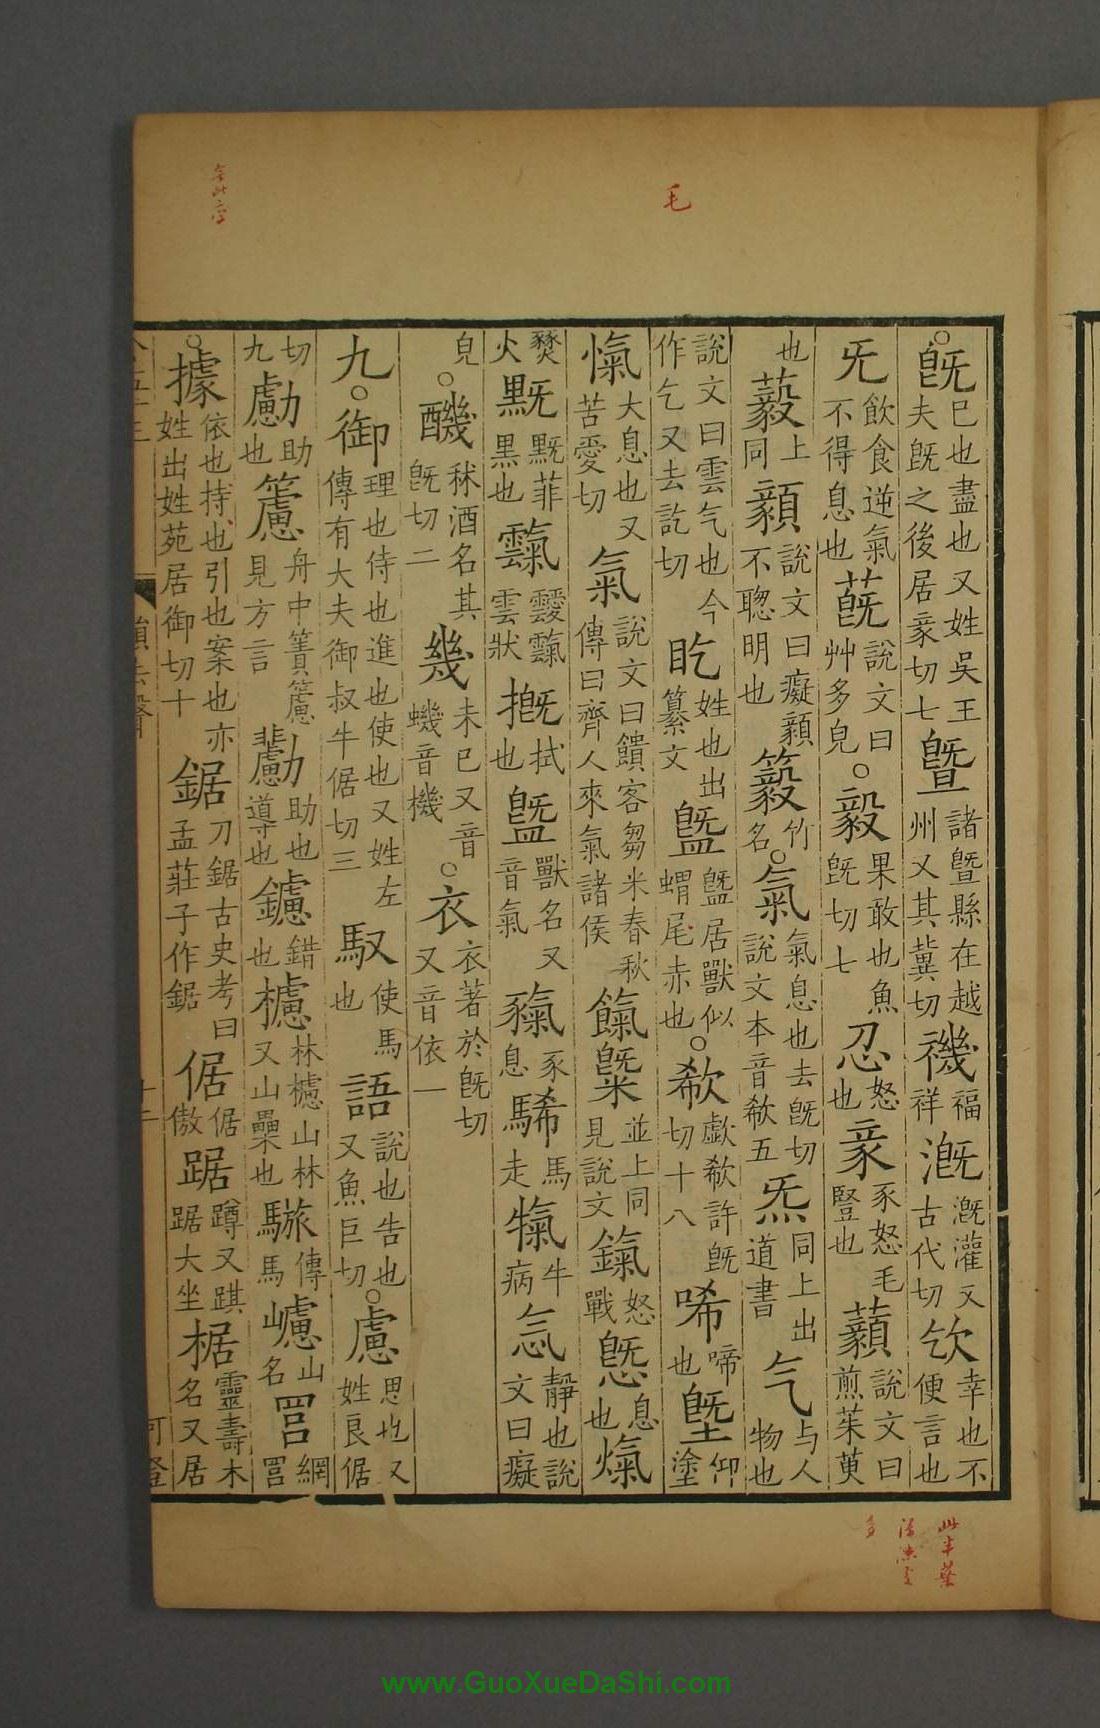 毛
。旣已也盡也又姓吳王夫旣之後居豙切七曁諸曁縣在越州又其冀切禨福祥漑漑灌又古代切㰟幸也不便言也
旡飲食逆氣不得息也蔇說文曰艸多皃。毅果敢也魚旣切七忍怒也豙豕怒毛豎也藙說文曰煎茱萸
也䕻上同顡說文曰癡顡不聰明也䉨竹名。氣氣息也去旣切說文本音欷五炁同上出道書气与人物也
說文曰雲气也今作乞又去訖切盵姓也出纂文䀈䀈居獸似蝟尾赤也。欷歔欷許旣切十八唏啼也墍仰塗
愾大息也又苦愛切氣說文曰饋客芻米春秋傳曰齊人來氣諸侯餼䊠並上同見說文鎎怒戰㤥息也熂
燹火黖黖䒈黑也霼靉霼雲狀摡拭也䀈獸名又音氣豷豕息騎馬走犔牛病忥靜也說文曰癡
皃。醙秫酒名其旣切二幾未已又音蟣音機。衣衣著於旣切又音依一
九。御理也侍也進也使也又姓左傳有大夫御叔牛倨切三馭使馬也語說也告也又魚巨切。慮思也又姓良倨
切九勴助也䉧舟中簀䉧見方言勴助也導也鑢錯也櫖林櫖山林又山櫐也䮫傳馬𡿖山名㒔網㒔
。據依也持也引也案也亦姓出姓苑居御切十鋸刀鋸古史考曰孟莊子作鋸倨倨傲踞蹲又踑踞大坐椐靈壽木名又居
此半葉
www.GuoXueDaShi.com